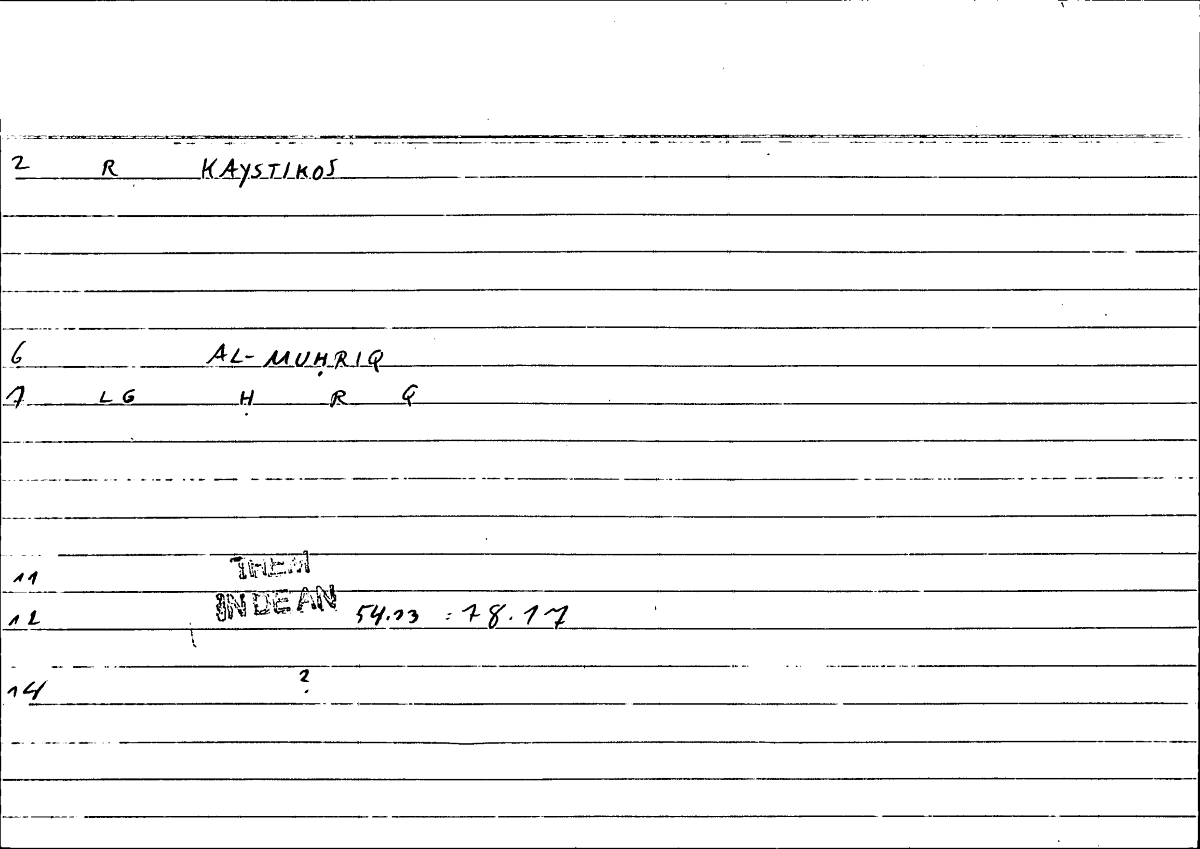 2 R KAYSTIKOS
6 AL-MUḤRIQ
7 LG Ḥ R Q
11 THEM
12 IN DE AN 54.13 : 78.17
14 ?